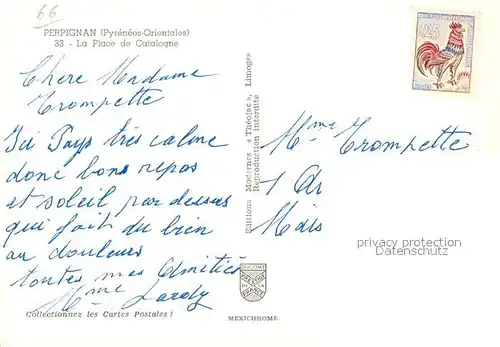 66
PERPIGNAN (Pyrénées-Orientales)
33 - La Place de Catalogne
Chere Madame
Trompette
Ici Pays très calme
donc bons repos
et soleil par dessus
qui fait du bien
au douleurs
toutes mes Amitiés
Mme
Collectionnez les Cartes Postales !
Editions Modernes « Théojac » Limoges
Reproduction interdite
MEXICHROME
0,25
Mme Trompette
privacy protection
Datenschutz